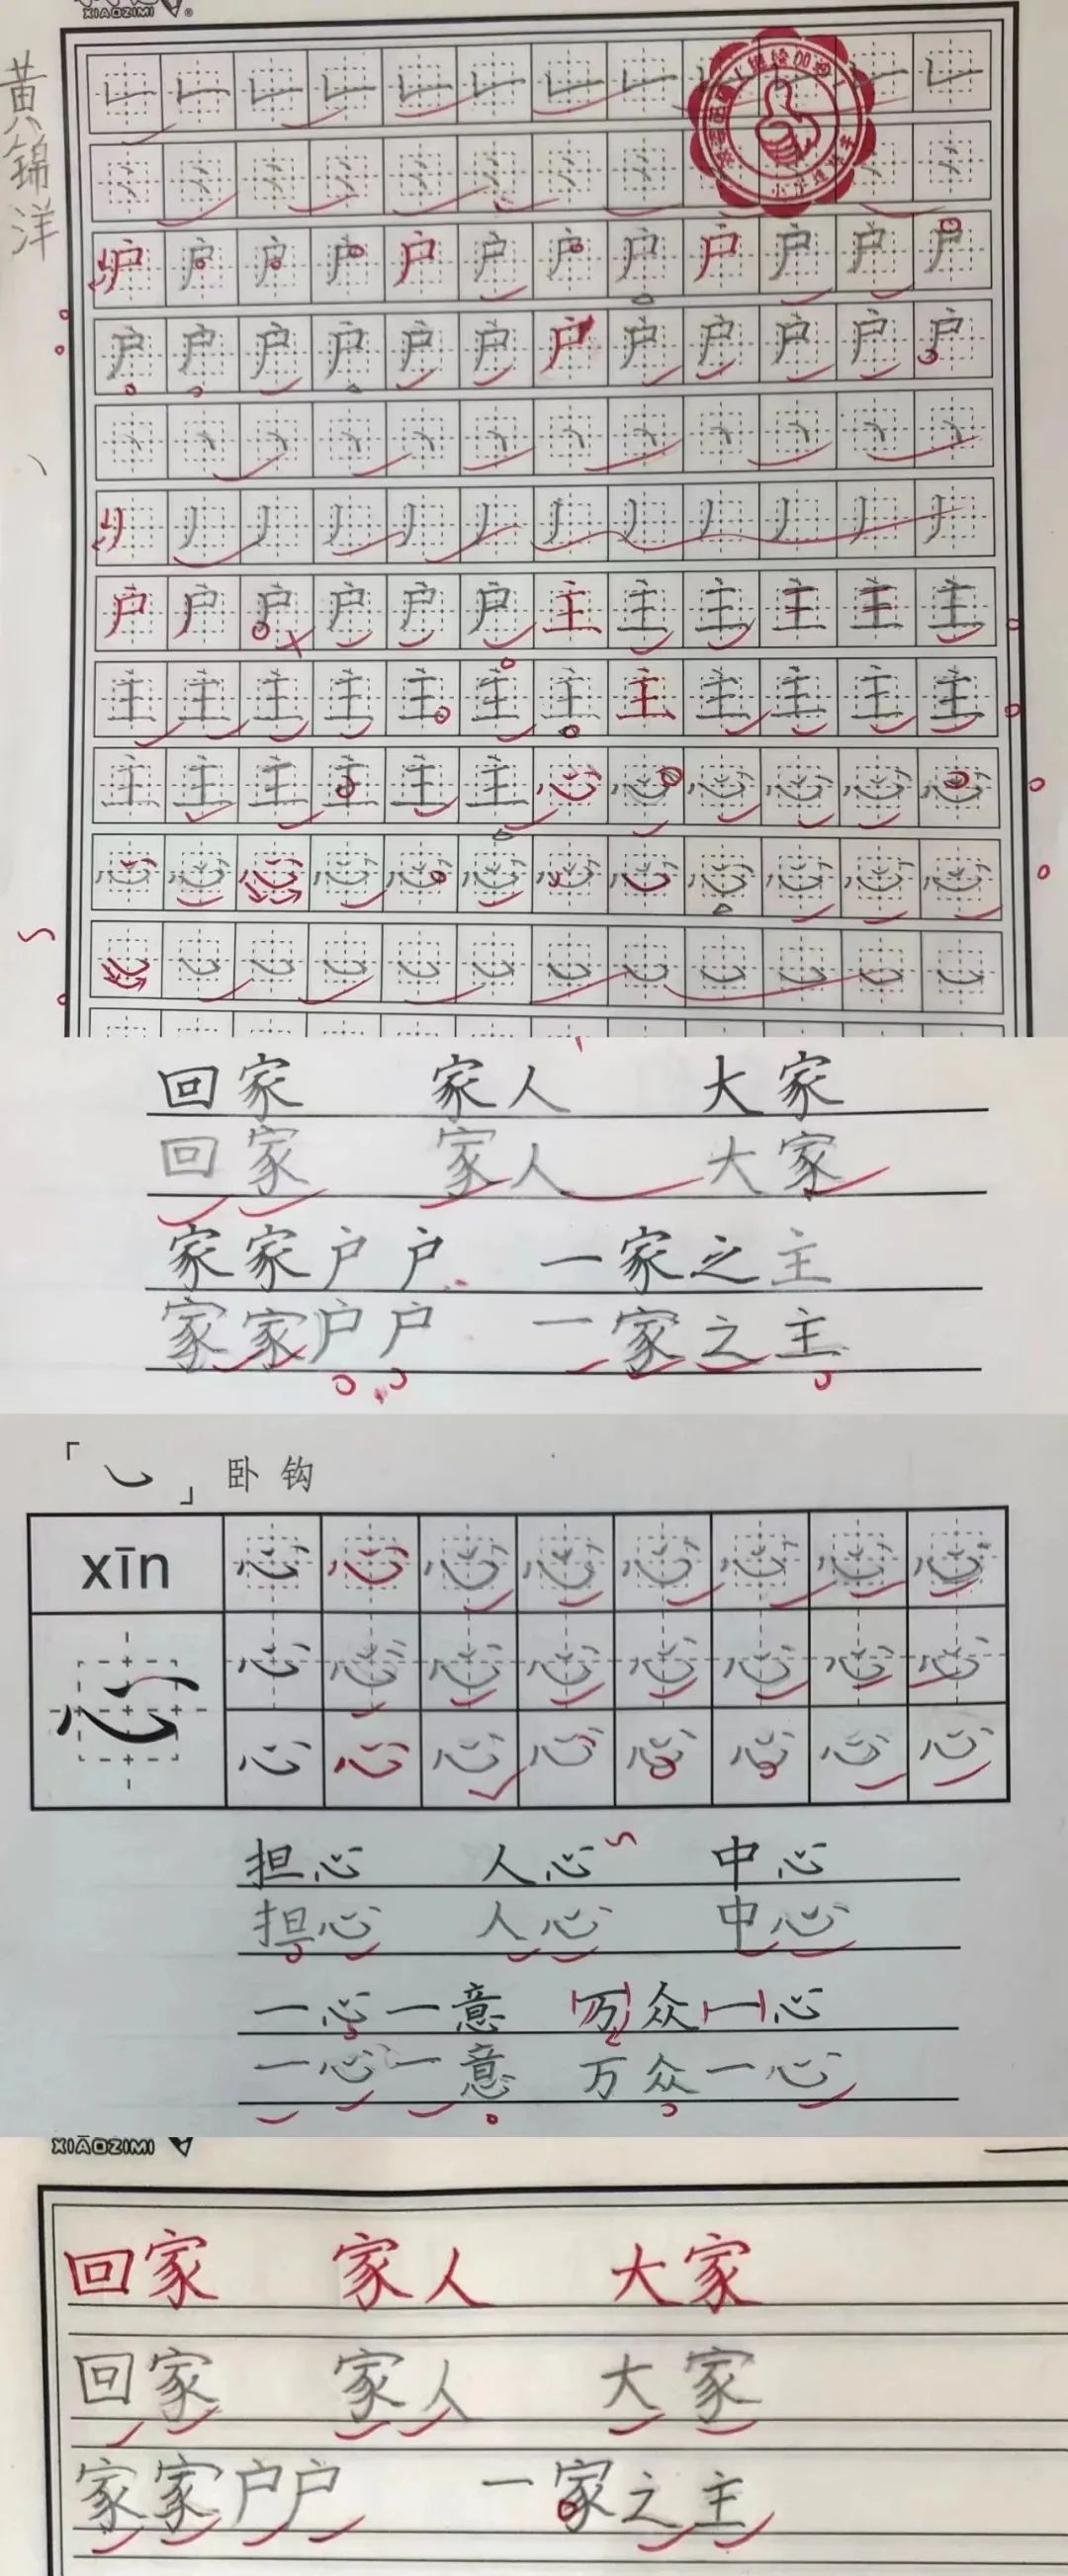 XIAOZIMI
黄锦洋
户户户户户户户户户户户户
户户户户户户户户户户户户
户户户户户户主主主主主主
主主主主主主主主主主主主
主主主主主主心心心心心心
心心心心心心心心心心心心
回家 家人 大家
回家 家人 大家
家家户户 一家之主
家家户户 一家之主
「㇃」卧钩
xīn 心心心心心心心心
心 心心心心心心心心
心心心心心心心心
担心 人心 中心
担心 人心 中心
一心一意 万众一心
一心一意 万众一心
XIAOZIMI
回家 家人 大家
回家 家人 大家
家家户户 一家之主